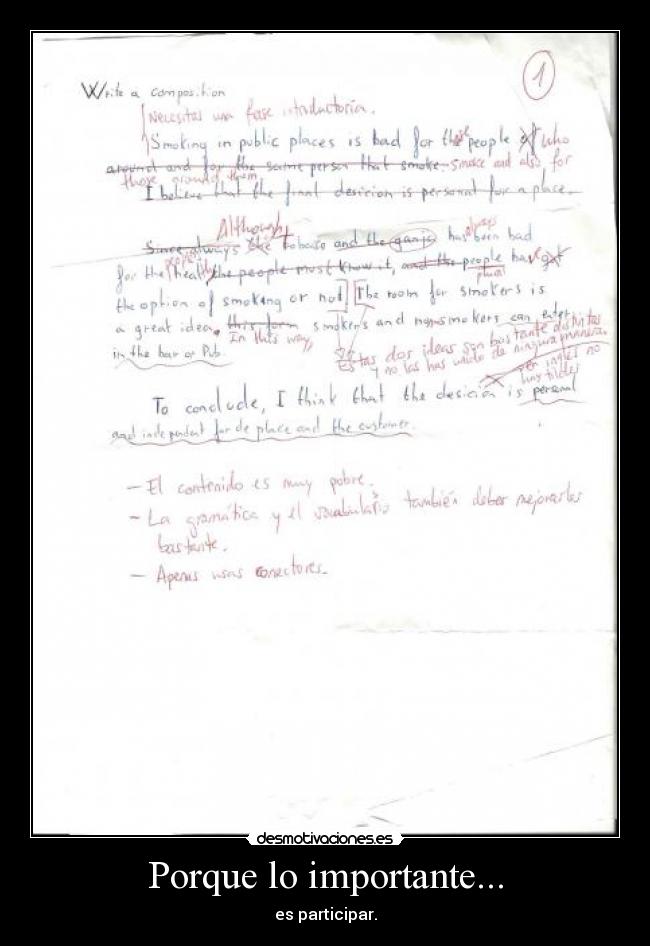 1
Write a composition
Necesitas una frase introductoria.
Smoking in public places is bad for those people of who
around and for the same person that smoke. smoke and also for
those around them.
I believe that the final desicion is personal for a place.
Although
Since always the tobaco and the ganja has always been bad
for the people's health, the people must know it, and the people have got
plural
the option of smoking or not] [The room for smokers is
a great idea. this form smokers and nonsmokers can enter
In this way,
in the bar or Pub.
Estas dos ideas son bastante distintas
y no las has unido de ninguna manera.
en inglés no
hay tildes
To conclude, I think that the desición is personal
and independent for de place and the customer.
- El contenido es muy pobre.
- La gramática y el vocabulario también debes mejorarlos
bastante.
- Apenas usas conectores.
desmotivaciones.es
Porque lo importante...
es participar.